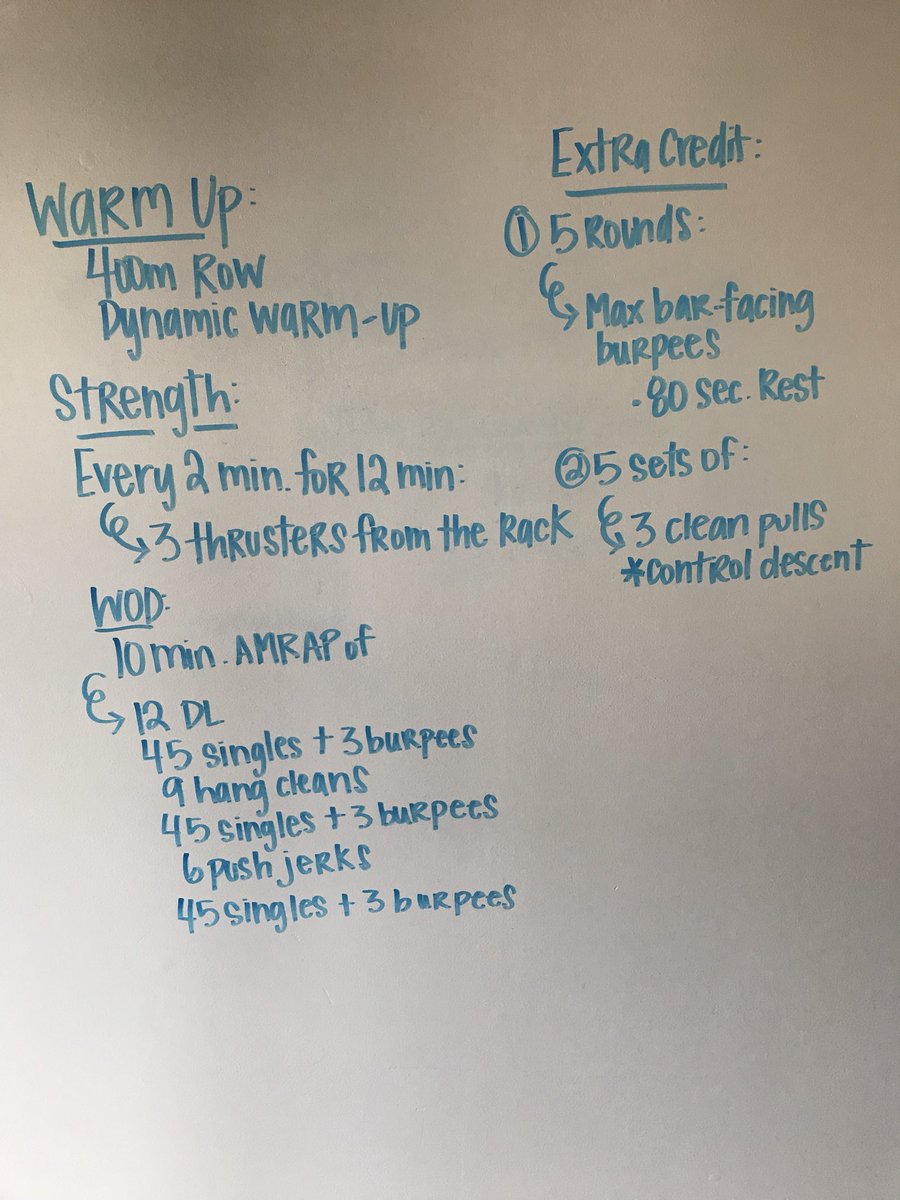 Warm Up:
400m Row
Dynamic warm-up
Strength:
Every 2 min. for 12 min:
3 thrusters from the rack
WOD:
10 min. AMRAP of
12 DL
45 singles + 3 burpees
9 hang cleans
45 singles + 3 burpees
6 push jerks
45 singles + 3 burpees
Extra Credit:
① 5 Rounds:
Max bar-facing
burpees
- 80 sec. Rest
② 5 sets of:
3 clean pulls
*control descent